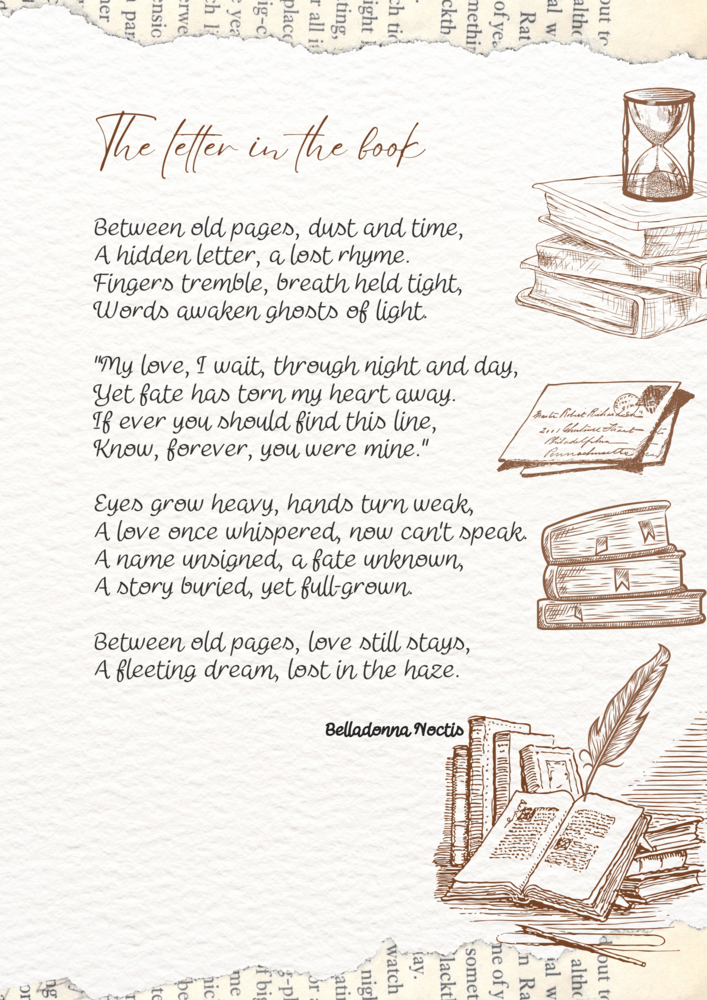 The letter in the book
Between old pages, dust and time,
A hidden letter, a lost rhyme.
Fingers tremble, breath held tight,
Words awaken ghosts of light.
"My love, I wait, through night and day,
Yet fate has torn my heart away.
If ever you should find this line,
Know, forever, you were mine."
Eyes grow heavy, hands turn weak,
A love once whispered, now can't speak.
A name unsigned, a fate unknown,
A story buried, yet full-grown.
Between old pages, love still stays,
A fleeting dream, lost in the haze.
Belladonna Noctis